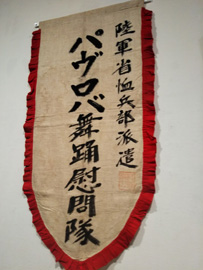 陸軍省恤兵部派遣
パヴロバ舞踊慰問隊